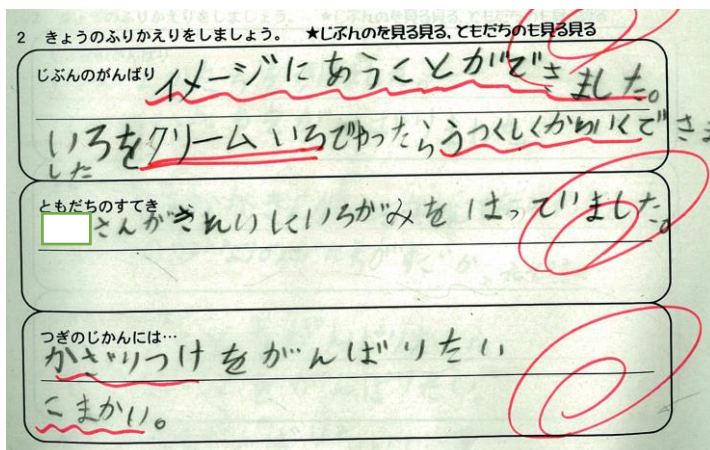 2 きょうのふりかえりをしましょう。 ★じぶんのを見る見る、ともだちのも見る見る
じぶんのがんばり
イメージにあうことができました。
いろをクリームいろでやったらうつくしくかわいくできま
した
ともだちのすてき
さんがきれいしくいろがみをはっていました。
つぎのじかんには…
かざりつけをがんばりたい
こまかい。